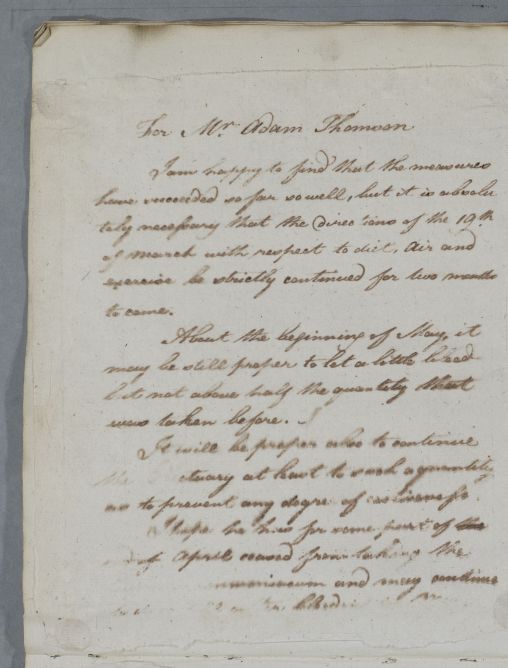 For Mr Adam Thomson
I am happy to find that the measures
have succeeded so far so well, but it is absolu
tely necessary that the directions of the 19th
of March with respect to diet, Air and
exercise be strictly continued for two months
to come.
About the beginning of May, it
may be still proper to let a little blood
but not above half the quantity that
was taken before.
It will be proper also to continue
the ctuary at least to such a quantity
as to prevent any degree of costiveness.
I hope he has for some part of the
of April ceased from taking the
ammoniacum and may continue